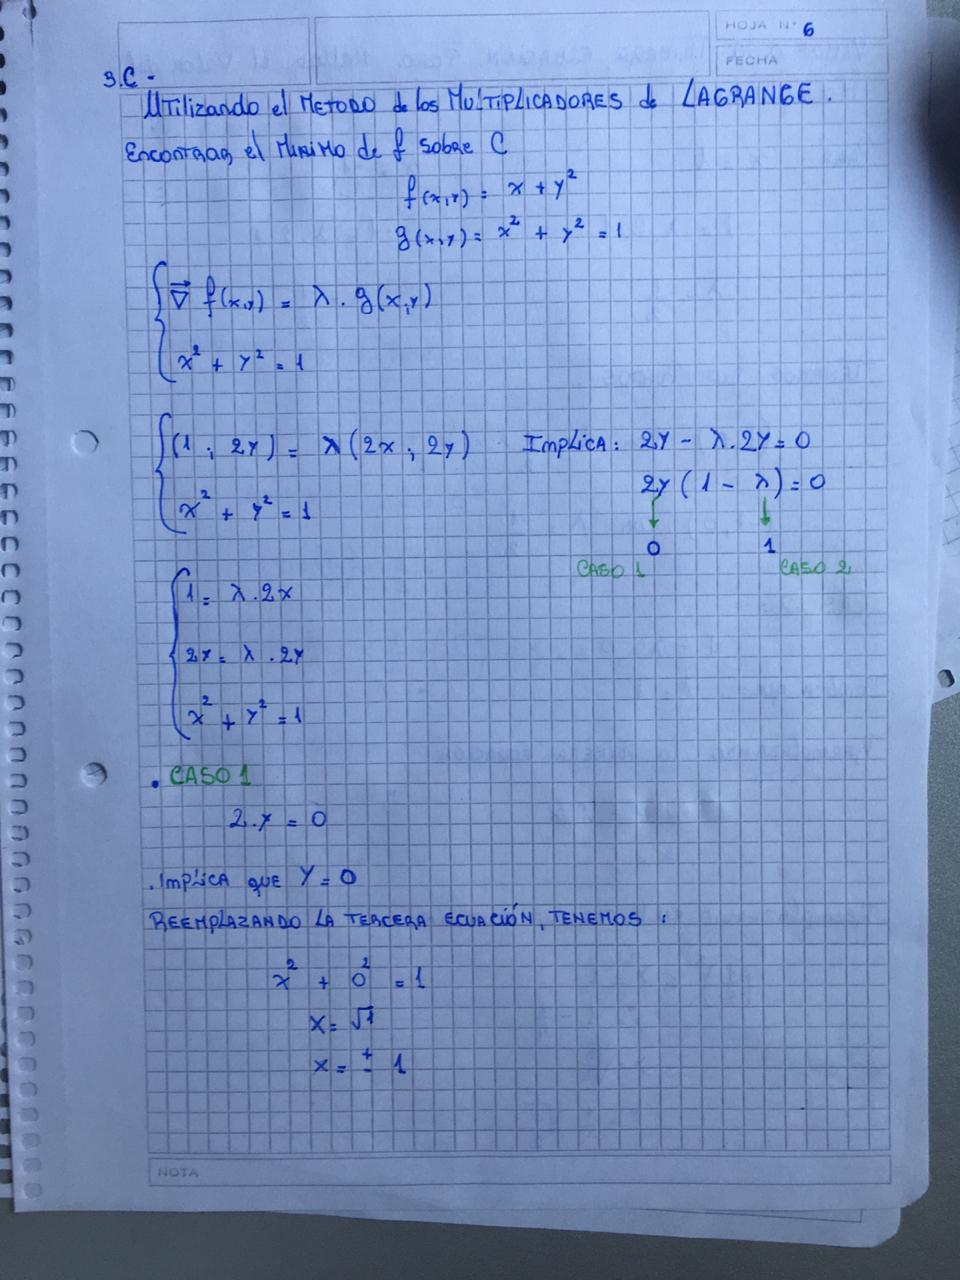 HOJA N° 6
FECHA
3.C -
Utilizando el METODO de los MULTIPLICADORES de LAGRANGE.
Encontrar el MINIMO de f sobre C
f(x,y) = x + y²
g(x,y) = x² + y² = 1
∇⃗ f(x,y) = λ . g(x,y)
x² + y² = 1
(1 ; 2y) = λ (2x ; 2y) IMPLICA: 2y - λ.2y = 0
x² + y² = 1 2y (1 - λ) = 0
0 1
CASO 1 CASO 2
1 = λ . 2x
2y = λ . 2y
x² + y² = 1
. CASO 1
2.y = 0
. IMPLICA QUE Y = 0
REEMPLAZANDO LA TERCERA ECUACIÓN, TENEMOS :
x² + 0² = 1
x = √1
x = ± 1
NOTA